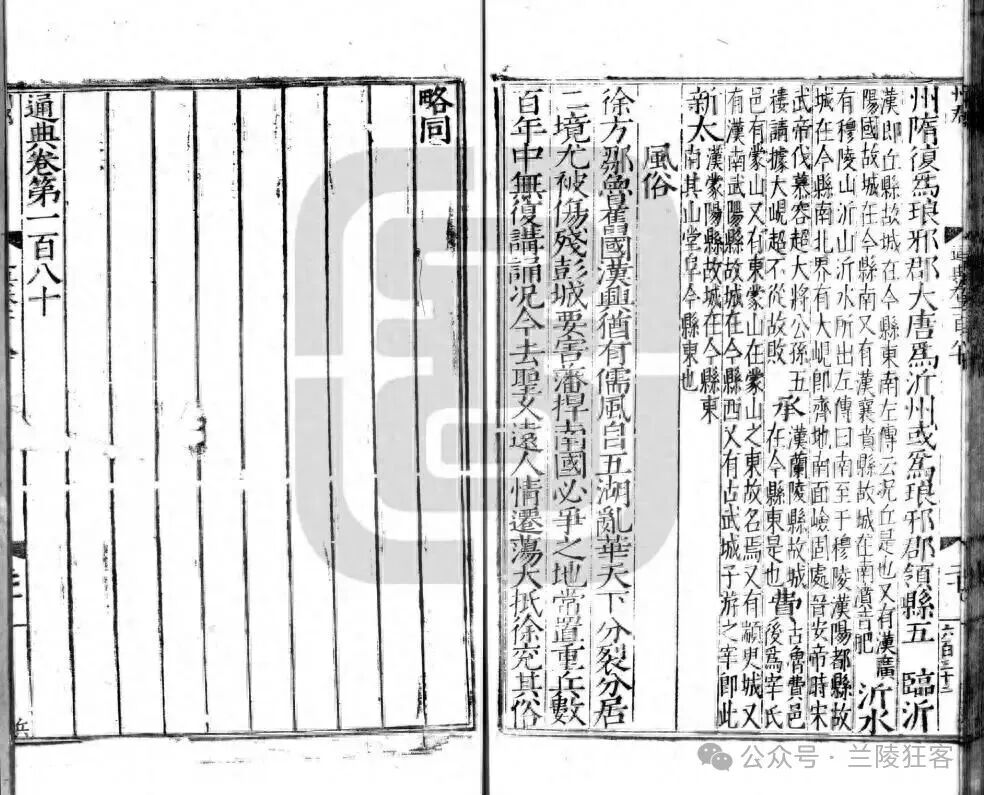 州隋復爲琅邪郡大唐爲沂州或爲琅邪郡領縣五 臨沂
漢即丘縣故城在今縣東南左傳云况丘是也又有漢廣
陽國故城在今縣南又有漢襄賁縣故城在南賁音肥 沂水
有穆陵山沂山沂水所出左傳曰南至于穆陵漢陽都縣故
城在今縣南北界有大峴即齊地南面嶮固處晉安帝時宋
武帝伐慕容超大將公孫五
樓請據大峴超不從故敗 承 漢蘭陵縣故城
在今縣東是也 費 古魯費邑
後爲宰氏
邑有蒙山又有東蒙山在蒙山之東故名焉又有顓臾城又
有漢南武陽縣故城在今縣西又有古武城子游之宰即此
新太 漢蒙陽縣故城在今縣東
南其山堂阜今縣東也
風俗
徐方鄒魯舊國漢興猶有儒風自五湖亂華天下分裂分居
二境尤被傷殘彭城要害藩捍南國必爭之地常置重兵數
百年中無復講誦况今去聖久遠人情遷蕩大抵徐兗其俗
略同
通典卷第一百八十
六百三十二
公众号·兰陵狂客